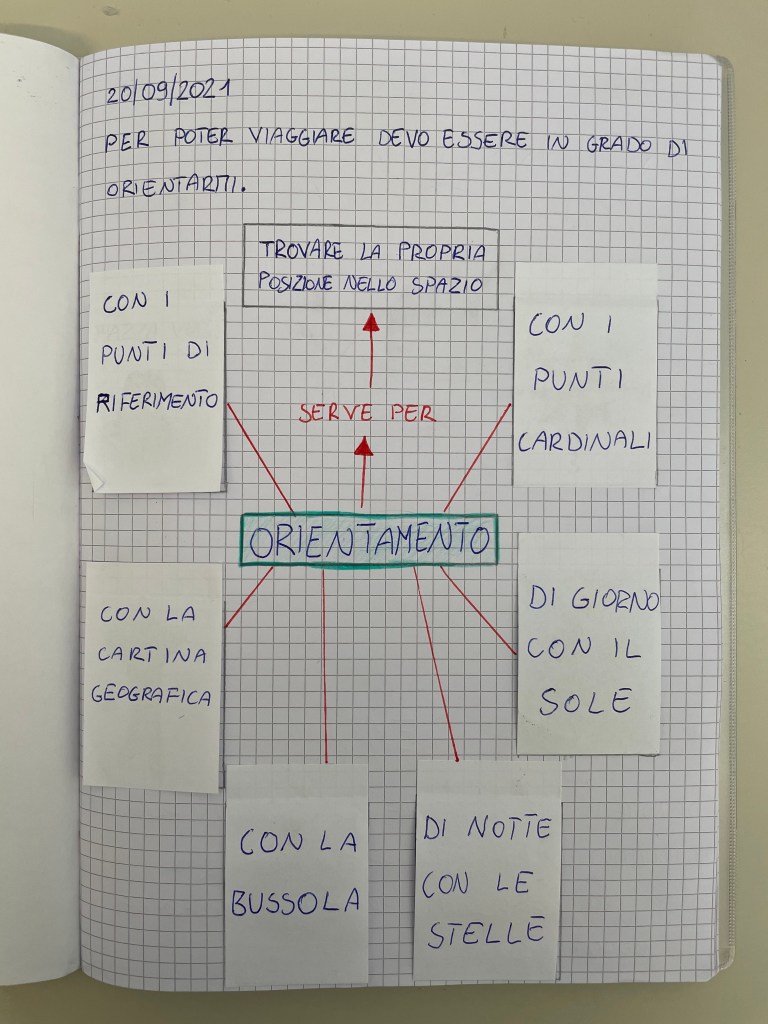 20/09/2021
PER POTER VIAGGIARE DEVO ESSERE IN GRADO DI
ORIENTARMI.
TROVARE LA PROPRIA
POSIZIONE NELLO SPAZIO
CON I
PUNTI DI
RIFERIMENTO
SERVE PER
CON I
PUNTI
CARDINALI
ORIENTAMENTO
CON LA
CARTINA
GEOGRAFICA
DI GIORNO
CON IL
SOLE
CON LA
BUSSOLA
DI NOTTE
CON LE
STELLE